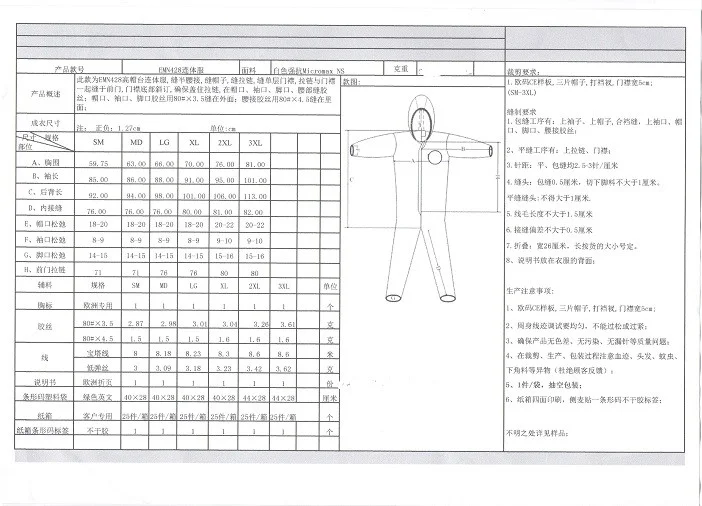 产品款号 EMN428连体服 面料 白色强抗Micromax NS 克重
产品概述
此款为EMN428高帽台连体服,缝半腰接,缝帽子,缝拉链,缝单层门襟,拉链与门襟
一起缝于前门,门襟底部斜订,确保盖住拉链,在帽口、袖口、脚口、腰部缝胶
丝;帽口、袖口、脚口胶丝用80#×3.5缝在外面;腰接胶丝用80#×4.5缝在里
面;
款图:
成衣尺寸 注: 正负:1.27cm 单位:cm
尺寸 规格 部位 SM MD LG XL 2XL 3XL
A、胸围 59.75 63.00 66.00 70.00 76.00 81.00
B、袖长 85.00 86.00 88.00 91.00 95.00 101.00
C、后背长 92.00 94.00 98.00 101.00 106.00 113.00
D、内接缝 76.00 76.00 76.00 80.00 81.00 82.00
E、帽口松弛 18-20 18-20 18-20 18-20 20-22 20-22
F、袖口松弛 8-9 8-9 8-9 8-9 9-10 9-10
G、脚口松弛 14-15 14-15 14-15 14-15 15-16 15-16
H、前门拉链 71 71 76 76 80 80
辅料 规格 SM MD LG XL 2XL 3XL 单位
胸标 欧洲专用 1 1 1 1 1 1 个
胶丝 80#×3.5 2.87 2.98 3.01 3.04 3.26 3.61 克
80#×4.5 1.5 1.5 1.5 1.6 1.6 1.6 克
线 宝塔线 8 8.18 8.23 8.3 8.6 8.6 米
低弹丝 3 3.09 3.18 3.23 3.42 3.62 克
说明书 欧洲折页 1 1 1 1 1 1 份
条形码塑料袋 绿色英文 40×28 40×28 40×28 40×28 44×28 44×28 厘米
纸箱 客户专用 25件/箱 25件/箱 25件/箱 25件/箱 25件/箱 25件/箱 个
纸箱条形码标签 不干胶 1 1 1 1 1 1 个
B
A
C
D
裁剪要求:
1.欧码CE样板,三片帽子,打裆衩,门襟宽5cm;
(SM-3XL)
缝制要求
1.包缝工序有:上袖子、上帽子,合裆缝,上袖口、帽
口、脚口、腰接胶丝;
2、平缝工序有:上拉链、门襟;
3.针距:平、包缝均2.5-3针/厘米
4.缝头:包缝0.5厘米,切下脚料不大于1厘米。
平缝缝头:不得大于1厘米.
5.线毛长度不大于1.5厘米
6.接缝偏差不大于0.5厘米
7.折叠:宽26厘米,长按货的大小号定。
8、说明书放在衣服的背面;
生产注意事项:
1、欧码CE样板,三片帽子,打裆衩,门襟宽5cm;
2、周身线迹调试要均匀,不能过松或过紧;
3、确保产品无色差、无污染、无漏针等质量问题;
4、在裁剪、生产、包装过程注意血迹、头发、蚊虫、
下角料等异物(杜绝顾客反馈);
5、1件/袋,抽空包装;
6、纸箱四面印刷,侧麦贴一条形码不干胶标签;
不明之处详见样品;